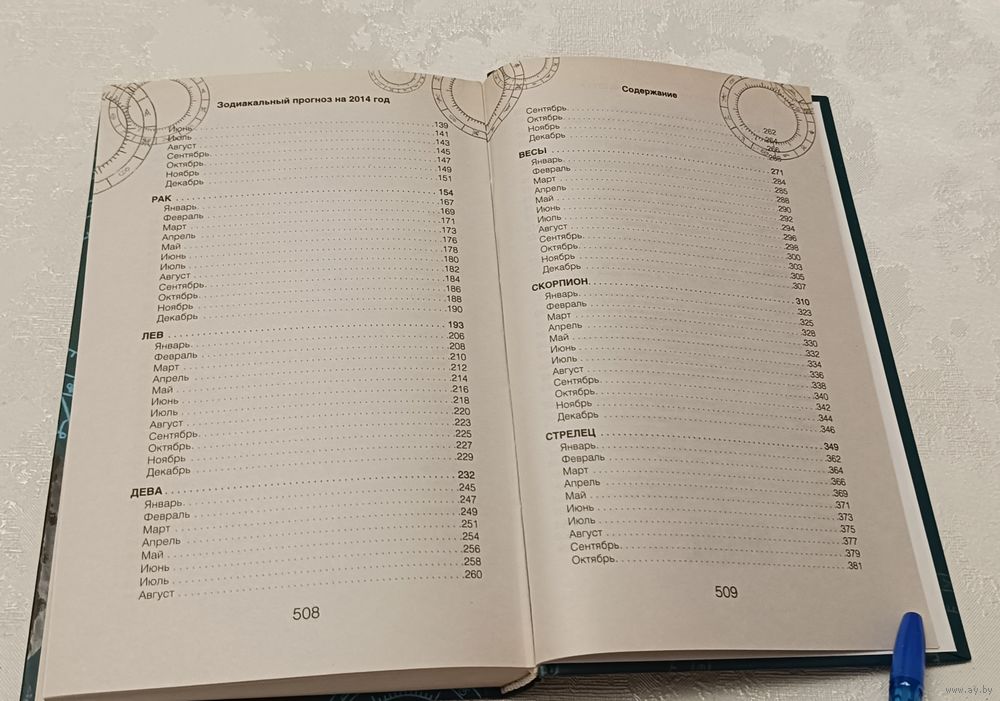 Зодиакальный прогноз на 2014 год
Июнь 139
Июль 141
Август 143
Сентябрь 145
Октябрь 147
Ноябрь 149
Декабрь 151
РАК 154
Январь 167
Февраль 169
Март 171
Апрель 173
Май 176
Июнь 178
Июль 180
Август 182
Сентябрь 184
Октябрь 186
Ноябрь 188
Декабрь 190
ЛЕВ 193
Январь 206
Февраль 208
Март 210
Апрель 212
Май 214
Июнь 216
Июль 218
Август 220
Сентябрь 223
Октябрь 225
Ноябрь 227
Декабрь 229
ДЕВА 232
Январь 245
Февраль 247
Март 249
Апрель 251
Май 254
Июнь 256
Июль 258
Август 260
508
Содержание
Сентябрь 262
Октябрь 264
Ноябрь 266
Декабрь 268
ВЕСЫ 271
Январь 284
Февраль 285
Март 288
Апрель 290
Май 292
Июнь 294
Июль 296
Август 298
Сентябрь 300
Октябрь 303
Ноябрь 305
Декабрь 307
СКОРПИОН 310
Январь 323
Февраль 325
Март 328
Апрель 330
Май 332
Июнь 334
Июль 336
Август 338
Сентябрь 340
Октябрь 342
Ноябрь 344
Декабрь 346
СТРЕЛЕЦ 349
Январь 362
Февраль 364
Март 366
Апрель 369
Май 371
Июнь 373
Июль 375
Август 377
Сентябрь 379
Октябрь 381
509
www.ay.by